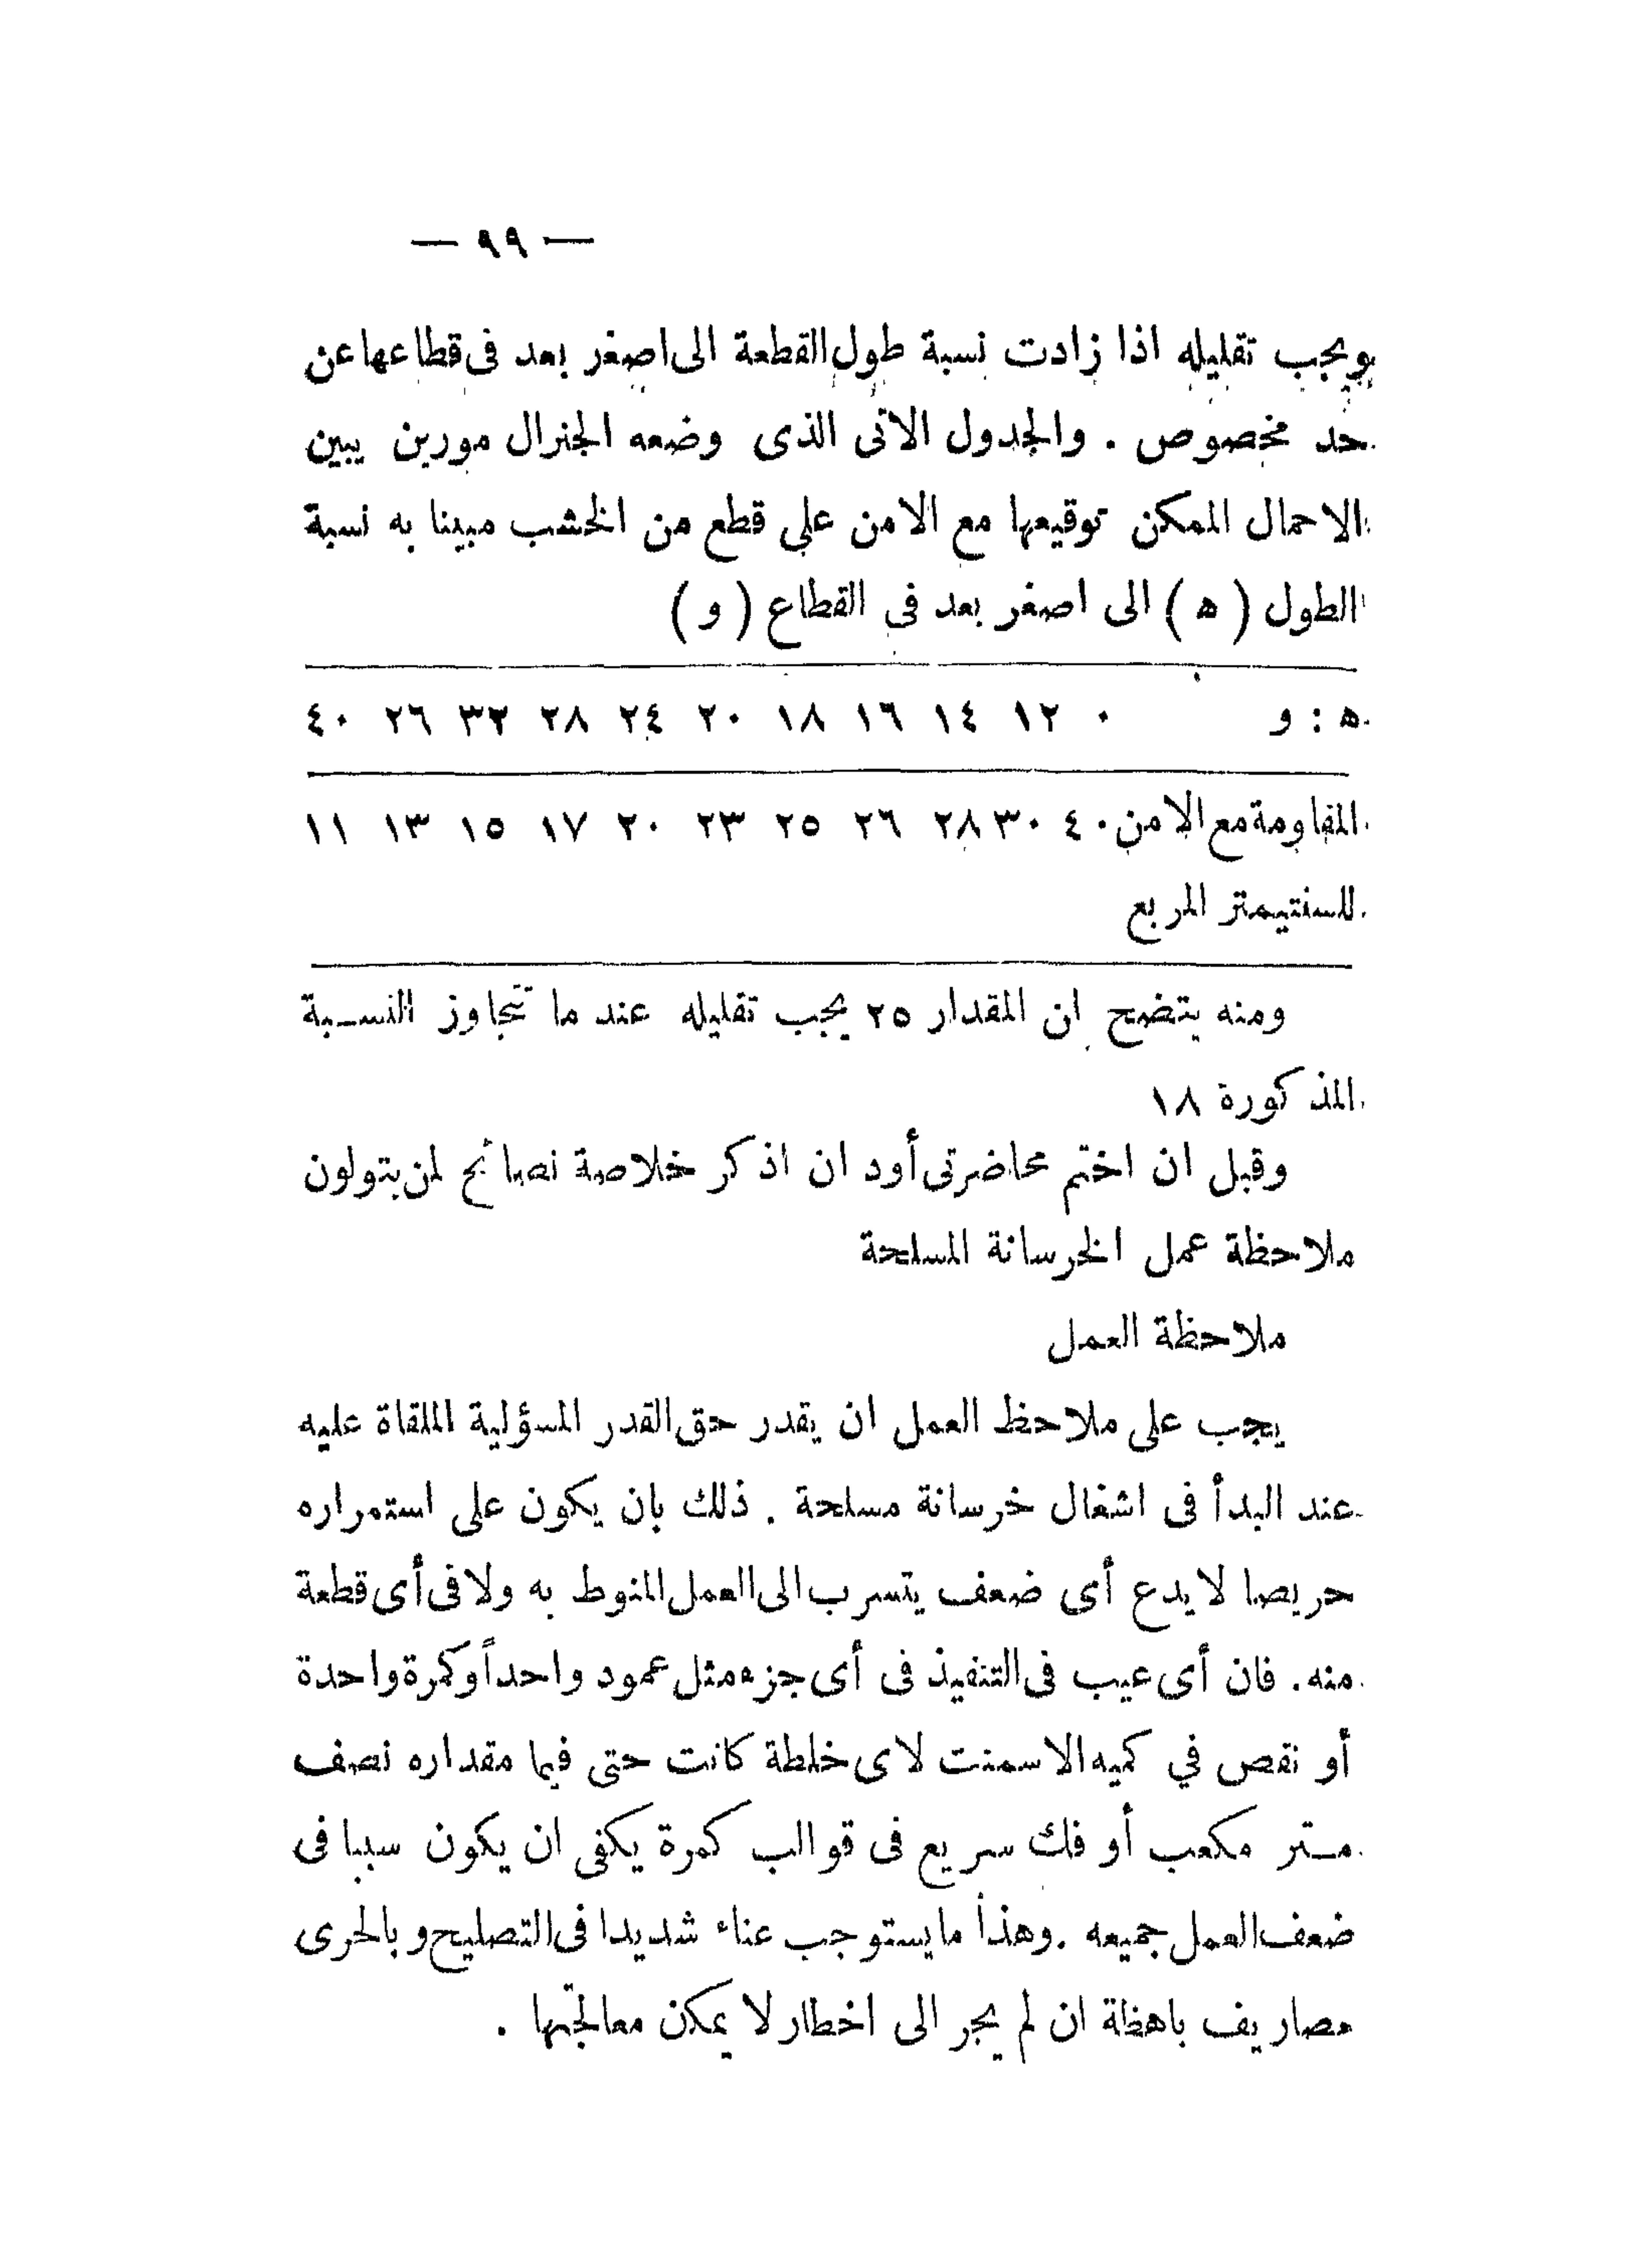 — ٩٩ —
ويجب تقليله اذا زادت نسبة طول القطعة الى اصغر بعد فى قطاعها عن
حد مخصوص . والجدول الاتى الذى وضعه الجنرال مورين يبين
الاحمال الممكن توقيعها مع الامن على قطع من الخشب مبينا به نسبة
الطول ( ه ) الى اصغر بعد فى القطاع ( و )
ه : و ٠ ١٢ ١٤ ١٦ ١٨ ٢٠ ٢٤ ٢٨ ٣٢ ٢٦ ٤٠
المقاومة مع الامن ٤٠ ٣٠ ٢٨ ٢٦ ٢٥ ٢٣ ٢٠ ١٧ ١٥ ١٣ ١١
للسنتيمتر المربع
ومنه يتضح ان المقدار ٢٥ يجب تقليله عند ما تتجاوز النسبة
المذكورة ١٨
وقبل ان اختم محاضرتى أود ان اذكر خلاصة نصائح لمن يتولون
ملاحظة عمل الخرسانة المسلحة
ملاحظة العمل
يجب على ملاحظ العمل ان يقدر حق القدر المسؤلية الملقاة عليه
عند البدأ فى اشغال خرسانة مسلحة . ذلك بان يكون على استمراره
حريصا لا يدع أى ضعف يتسرب الى العمل المنوط به ولا فى أى قطعة
منه . فان أى عيب فى التنفيذ فى أى جزء مثل عمود واحد أو كمرة واحدة
أو نقص في كميه الاسمنت لاى خلطة كانت حتى فيما مقداره نصف
متر مكعب أو فك سريع فى قوالب كمرة يكفى ان يكون سببا فى
ضعف العمل جميعه . وهذا ما يستوجب عناء شديدا فى التصليح وبالحرى
مصاريف باهظة ان لم يجر الى اخطار لا يمكن معالجتها .